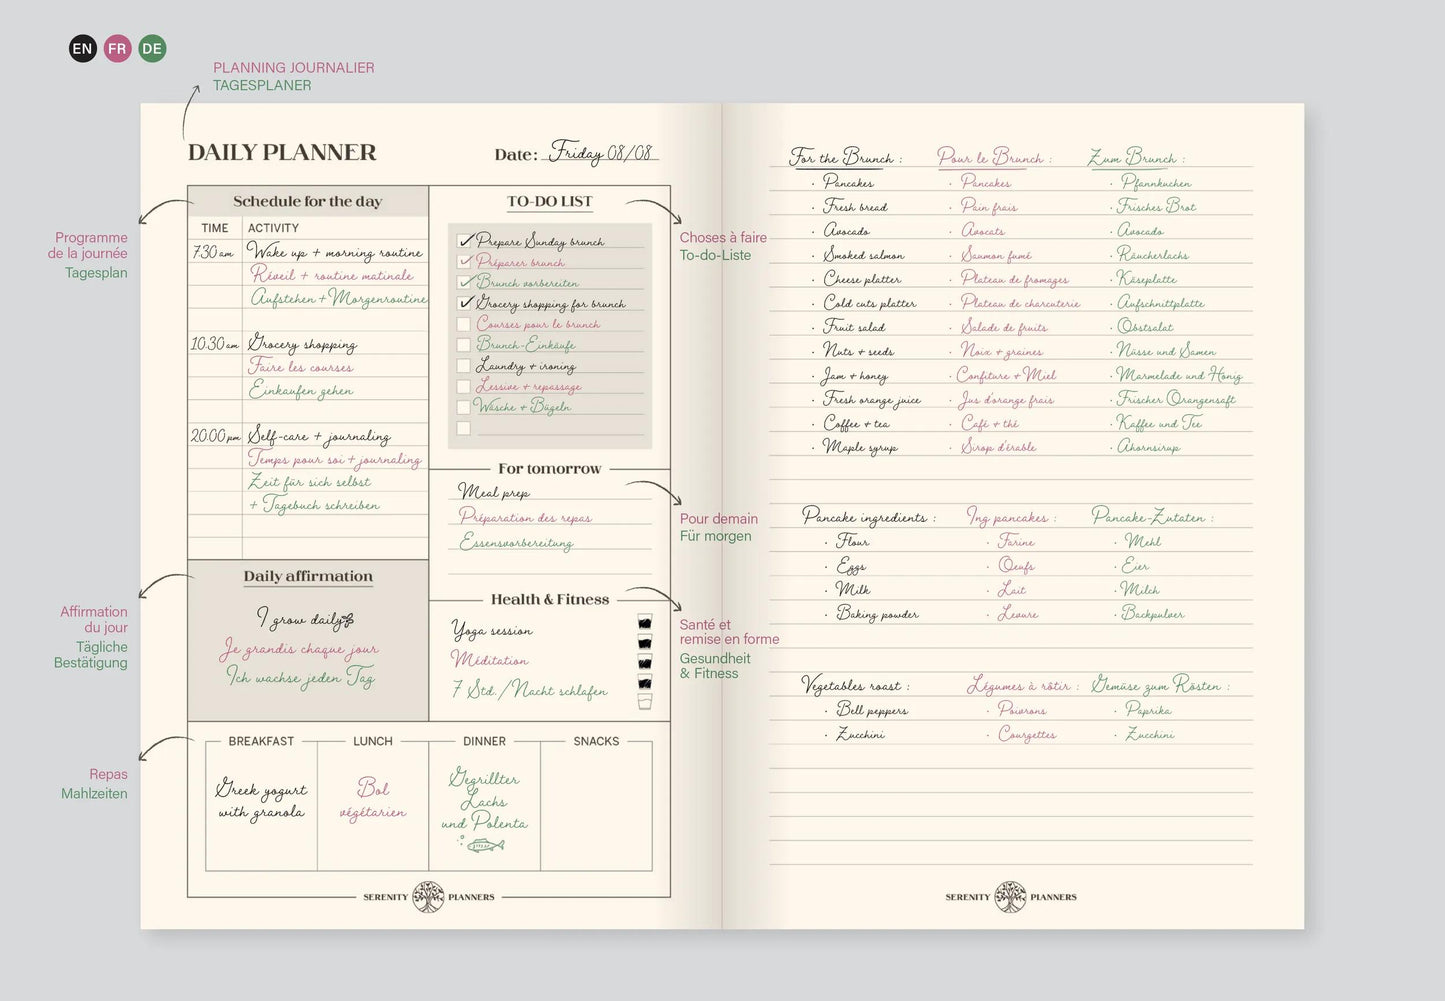 EN FR DE
PLANNING JOURNALIER
TAGESPLANER
DAILY PLANNER
Date: Friday 08/08
Schedule for the day
TIME ACTIVITY
7.30 am Wake up + morning routine
Réveil + routine matinale
Aufstehen + Morgenroutine
10.30 am Grocery shopping
Faire les courses
Einkaufen gehen
20.00 pm Self-care + journaling
Temps pour soi + journaling
Zeit für sich selbst
+ Tagebuch schreiben
Programme
de la journée
Tagesplan
TO-DO LIST
Prepare Sunday brunch
Préparer brunch
Brunch vorbereiten
Grocery shopping for brunch
Courses pour le brunch
Brunch-Einkäufe
Laundry + ironing
Lessive + repassage
Wäsche + Bügeln
Choses à faire
To-do-Liste
For tomorrow
Meal prep
Préparation des repas
Essensvorbereitung
Pour demain
Für morgen
Daily affirmation
I grow daily
Je grandis chaque jour
Ich wachse jeden Tag
Affirmation
du jour
Tägliche
Bestätigung
Health & Fitness
Yoga session
Méditation
7 Std. / Nacht schlafen
Santé et
remise en forme
Gesundheit
& Fitness
Repas
Mahlzeiten
BREAKFAST LUNCH DINNER SNACKS
Greek yogurt
with granola
Bol
végétarien
Gegrillter
Lachs
und Polenta
SERENITY PLANNERS
For the Brunch : Pour le Brunch : Zum Brunch :
· Pancakes · Pancakes · Pfannkuchen
· Fresh bread · Pain frais · Frisches Brot
· Avocado · Avocats · Avocado
· Smoked salmon · Saumon fumé · Räucherlachs
· Cheese platter · Plateau de fromages · Käseplatte
· Cold cuts platter · Plateau de charcuterie · Aufschnittplatte
· Fruit salad · Salade de fruits · Obstsalat
· Nuts + seeds · Noix + graines · Nüsse und Samen
· Jam + honey · Confiture + Miel · Marmelade und Honig
· Fresh orange juice · Jus d'orange frais · Frischer Orangensaft
· Coffee + tea · Café + thé · Kaffee und Tee
· Maple syrup · Sirop d'érable · Ahornsirup
Pancake ingredients : Ing pancakes : Pancake-Zutaten :
· Flour · Farine · Mehl
· Eggs · Oeufs · Eier
· Milk · Lait · Milch
· Baking powder · Levure · Backpulver
Vegetables roast : Légumes à rôtir : Gemüse zum Rösten :
· Bell peppers · Poivrons · Paprika
· Zucchini · Courgettes · Zucchini
SERENITY PLANNERS